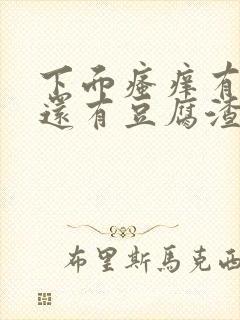 下而瘙痒有
還有豆腐渣
布里斯馬克西